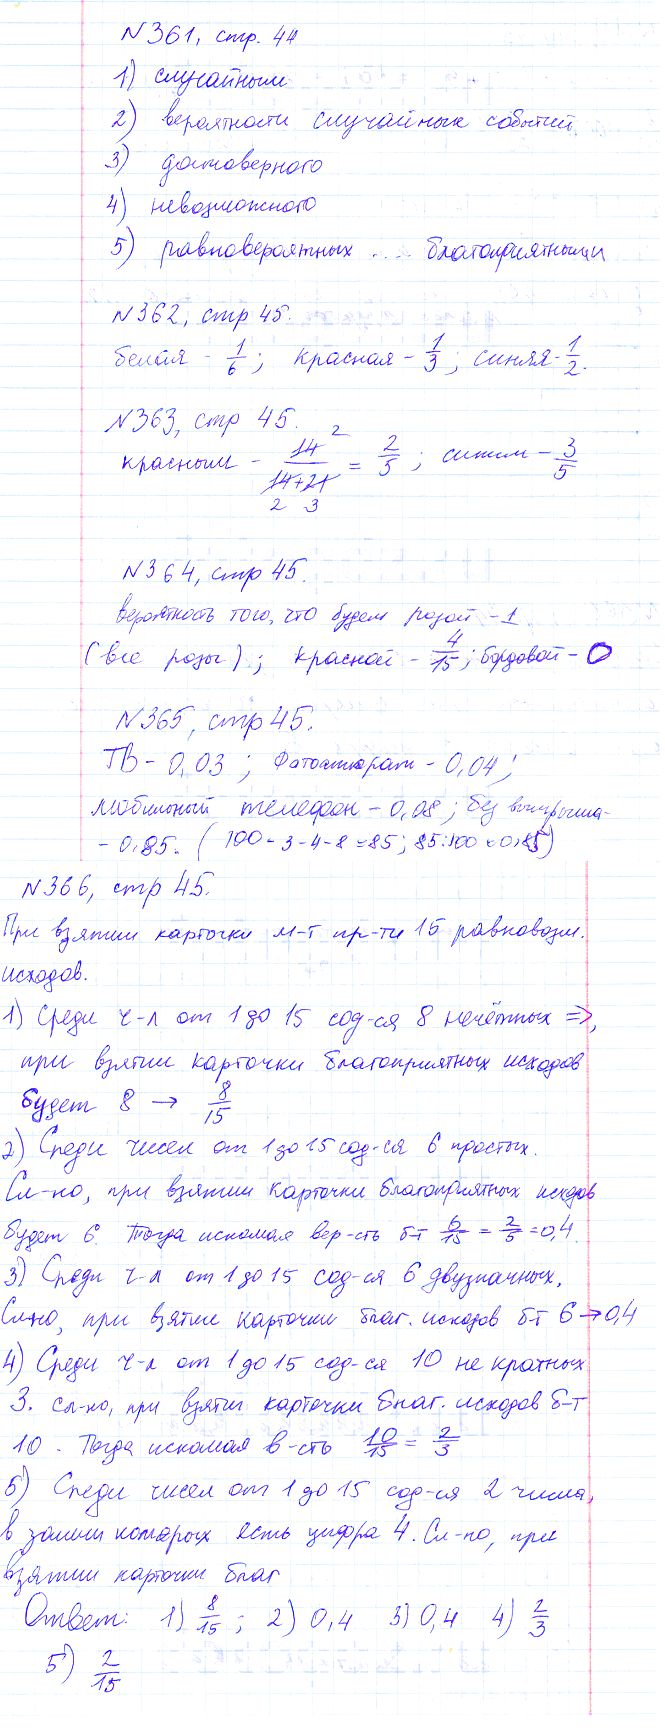 №361, стр. 44
1) случайным
2) вероятности случайных событий
3) достоверного
4) невозможного
5) равновероятных .... благоприятными
№362, стр 45.
белая - 1/6; красная - 1/3; синяя - 1/2.
№363, стр 45.
красным - 14/(14+21) = 2/5; синим - 3/5
2
2 3
№364, стр 45.
вероятность того, что будет розой - 1
(все розы); красной - 4/15; бордовой - 0
№365, стр 45.
ТВ - 0,03; Фотоаппарат - 0,04;
мобильный телефон - 0,08; без выигрыша -
- 0,85. (100-3-4-8=85; 85:100=0,85)
№366, стр 45.
При взятии карточки м-т пр-ти 15 равновозм.
исходов.
1) Среди ч-л от 1 до 15 сод-ся 8 нечётных =>,
при взятии карточки благоприятных исходов
будет 8 → 8/15
2) Среди чисел от 1 до 15 сод-ся 6 простых.
Сл-но, при взятии карточки благоприятных исходов
будет 6. Тогда искомая вер-сть б-т 6/15 = 2/5 = 0,4.
3) Среди ч-л от 1 до 15 сод-ся 6 двузначных.
Сл-но, при взятии карточки благ. исходов б-т 6 → 0,4
4) Среди ч-л от 1 до 15 сод-ся 10 не кратных
3. Сл-но, при взятии карточки благ. исходов б-т
10. Тогда искомая в-сть 10/15 = 2/3
5) Среди чисел от 1 до 15 сод-ся 2 числа,
в записи которых есть цифра 4. Сл-но, при
взятии карточки благ
Ответ: 1) 8/15; 2) 0,4 3) 0,4 4) 2/3
5) 2/15